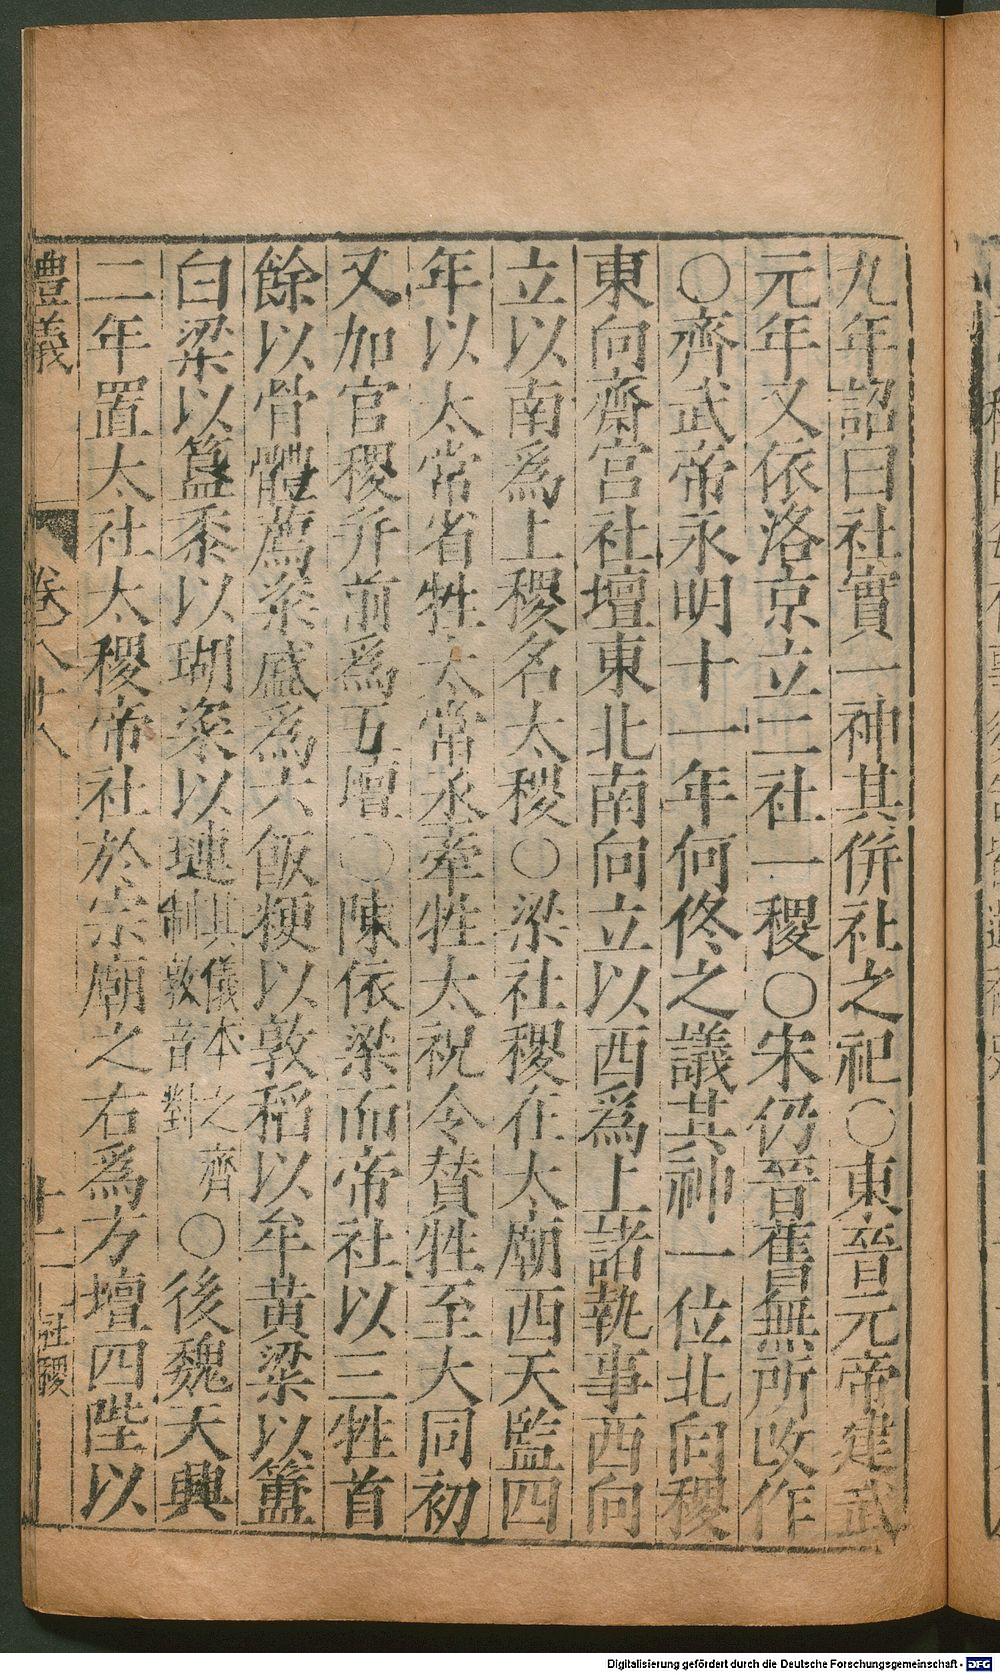 九年詔曰社實一神其併社之祀○東晉元帝建武
元年又依洛京立二社一稷○宋仍晉舊無所改作
○齊武帝永明十一年何佟之議其神一位北向稷
東向齋宮社壇東北南向立以西爲上諸執事西向
立以南爲上稷名太稷○梁社稷在太廟西天監四
年以太常省牲太常丞牽牲太祝令賛牲至大同初
又加官稷并前爲五壇○陳依梁而帝社以三牲首
餘以骨體薦粢盛爲六飯粳以敦稻以牟黄粱以簠
白粱以簋黍以瑚粢以璉其儀本之齊制敦音對○後魏天興
二年置太社太稷帝社於宗廟之右爲方壇四陛以
豊義 卷八十八 十二 社稷
Digitalisierung gefördert durch die Deutsche Forschungsgemeinschaft - DFG